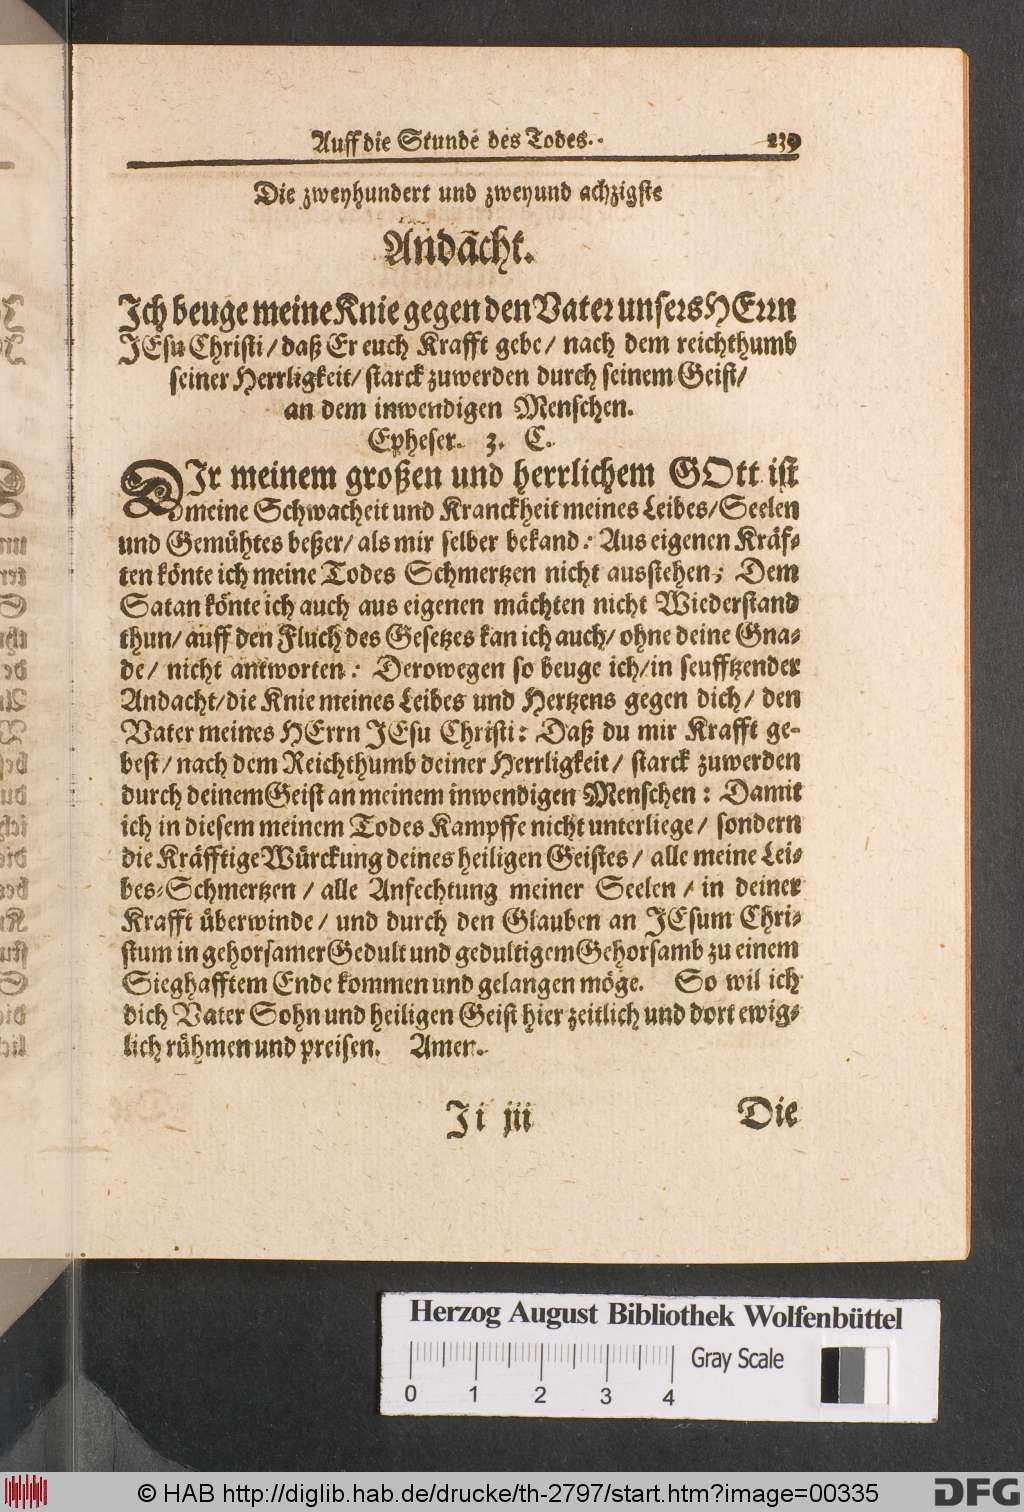 Auff die Stunde des Todes. 239
Die zweyhundert und zweyund achzigste
Andacht.
Ich beuge meine Knie gegen den Vater unsers HErrn
JEsu Christi / daß Er euch Krafft gebe / nach dem reichthumb
seiner Herrligkeit / starck zuwerden durch seinem Geist /
an dem inwendigen Menschen.
Epheser. 3. C.
DIr meinem großen und herrlichem GOtt ist
meine Schwacheit und Kranckheit meines Leibes / Seelen
und Gemühtes beßer / als mir selber bekand: Aus eigenen Kräf-
ten könte ich meine Todes Schmertzen nicht ausstehen; Dem
Satan könte ich auch aus eigenen mächten nicht Wiederstand
thun / auff den Fluch des Gesetzes kan ich auch / ohne deine Gna-
de / nicht antworten: Derowegen so beuge ich / in seufftzender
Andacht / die Knie meines Leibes und Hertzens gegen dich / den
Vater meines HErrn JEsu Christi: Daß du mir Krafft ge-
best / nach dem Reichthumb deiner Herrligkeit / starck zuwerden
durch deinem Geist an meinem inwendigen Menschen: Damit
ich in diesem meinem Todes Kampffe nicht unterliege / sondern
die Kräfftige Würckung deines heiligen Geistes / alle meine Lei-
bes-Schmertzen / alle Anfechtung meiner Seelen / in deiner
Krafft überwinde / und durch den Glauben an JEsum Chri-
stum in gehorsamer Gedult und gedultigem Gehorsamb zu einem
Sieghafftem Ende kommen und gelangen möge. So wil ich
dich Vater Sohn und heiligen Geist hier zeitlich und dort ewig-
lich rühmen und preisen. Amen.
Ii iii Die
Herzog August Bibliothek Wolfenbüttel
0 1 2 3 4 Gray Scale
© HAB http://diglib.hab.de/drucke/th-2797/start.htm?image=00335
DFG